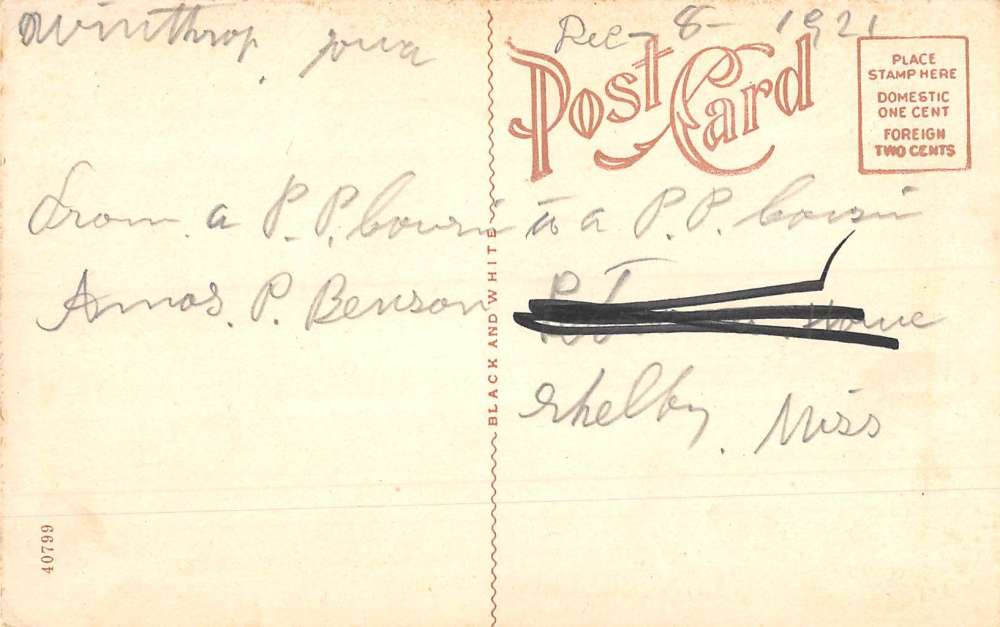 Winthrop, Iowa
Dec - 8 - 1921
POST CARD
PLACE
STAMP HERE
DOMESTIC
ONE CENT
FOREIGN
TWO CENTS
From a P. P. Cousin to a P. P. Cousin
Amos. P. Benson
Shelby, Miss
BLACK AND WHITE
40799